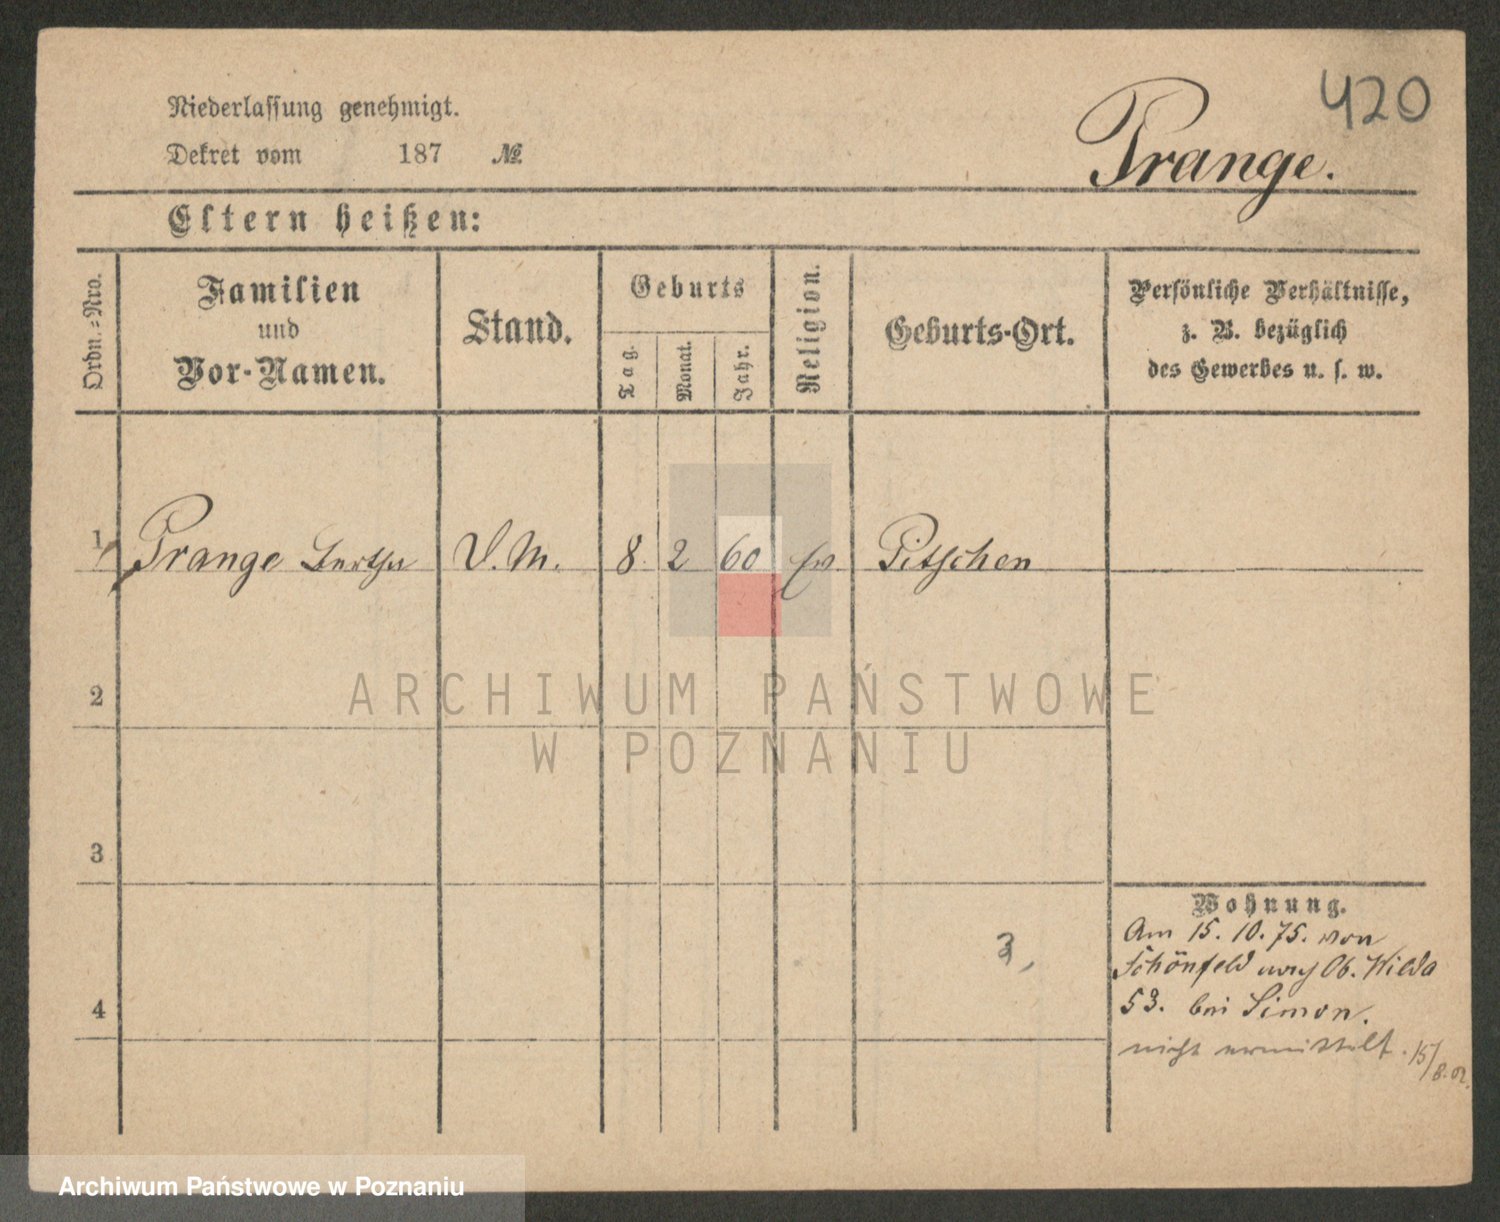 420
Niederlassung genehmigt.
Dekret vom 187 №
Prange.
Eltern heißen:
Ordn.-Nro.
Familien und Vor-Namen.
Stand.
Geburts
Tag.
Monat.
Jahr.
Religion.
Geburts-Ort.
Persönliche Verhältnisse,
z. B. bezüglich
des Gewerbes u. s. w.
1 Prange Bertha D. M. 8. 2 60 Ev. Pitschen
2
3
Wohnung.
Am 15. 10. 75. von
Schönfeld nach Ob. Wilda
53. bei Simon.
nicht ermittelt. 15/8. 02.
3,
4
ARCHIWUM PAŃSTWOWE
W POZNANIU
Archiwum Państwowe w Poznaniu